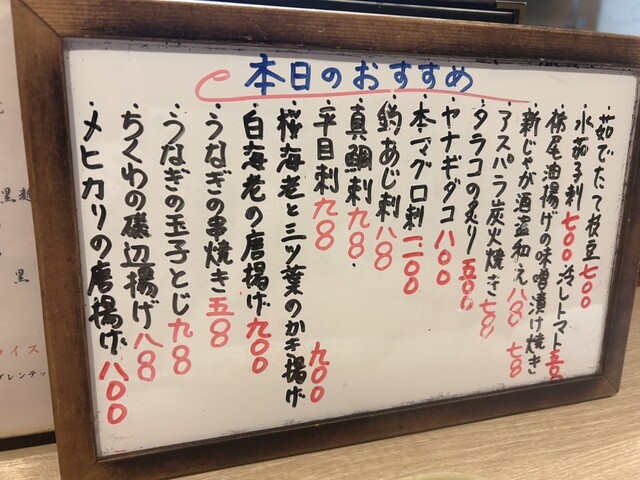 本日のおすすめ
・茹でたて枝豆 七〇〇
・水茄子刺 七〇〇 冷しトマト 五〇
・栃尾油揚げの味噌漬け焼き 七八
・新じゃが酒盗和え 八八
・アスパラ炭火焼き 七八
・タラコの炙り 五〇〇
・ヤナギダコ 八〇〇
・本マグロ刺 一二〇〇
・釣あじ刺 八八
・真鯛刺 九八
・平目刺 九八
・桜海老と三ツ葉のかき揚げ 九〇〇
・白海老の唐揚げ 九〇〇
・うなぎの串焼き 五八
・うなぎの玉子とじ 九八
・ちくわの磯辺揚げ 八八
・メヒカリの唐揚げ 八〇〇
黒
黒
イス
グレンテッ